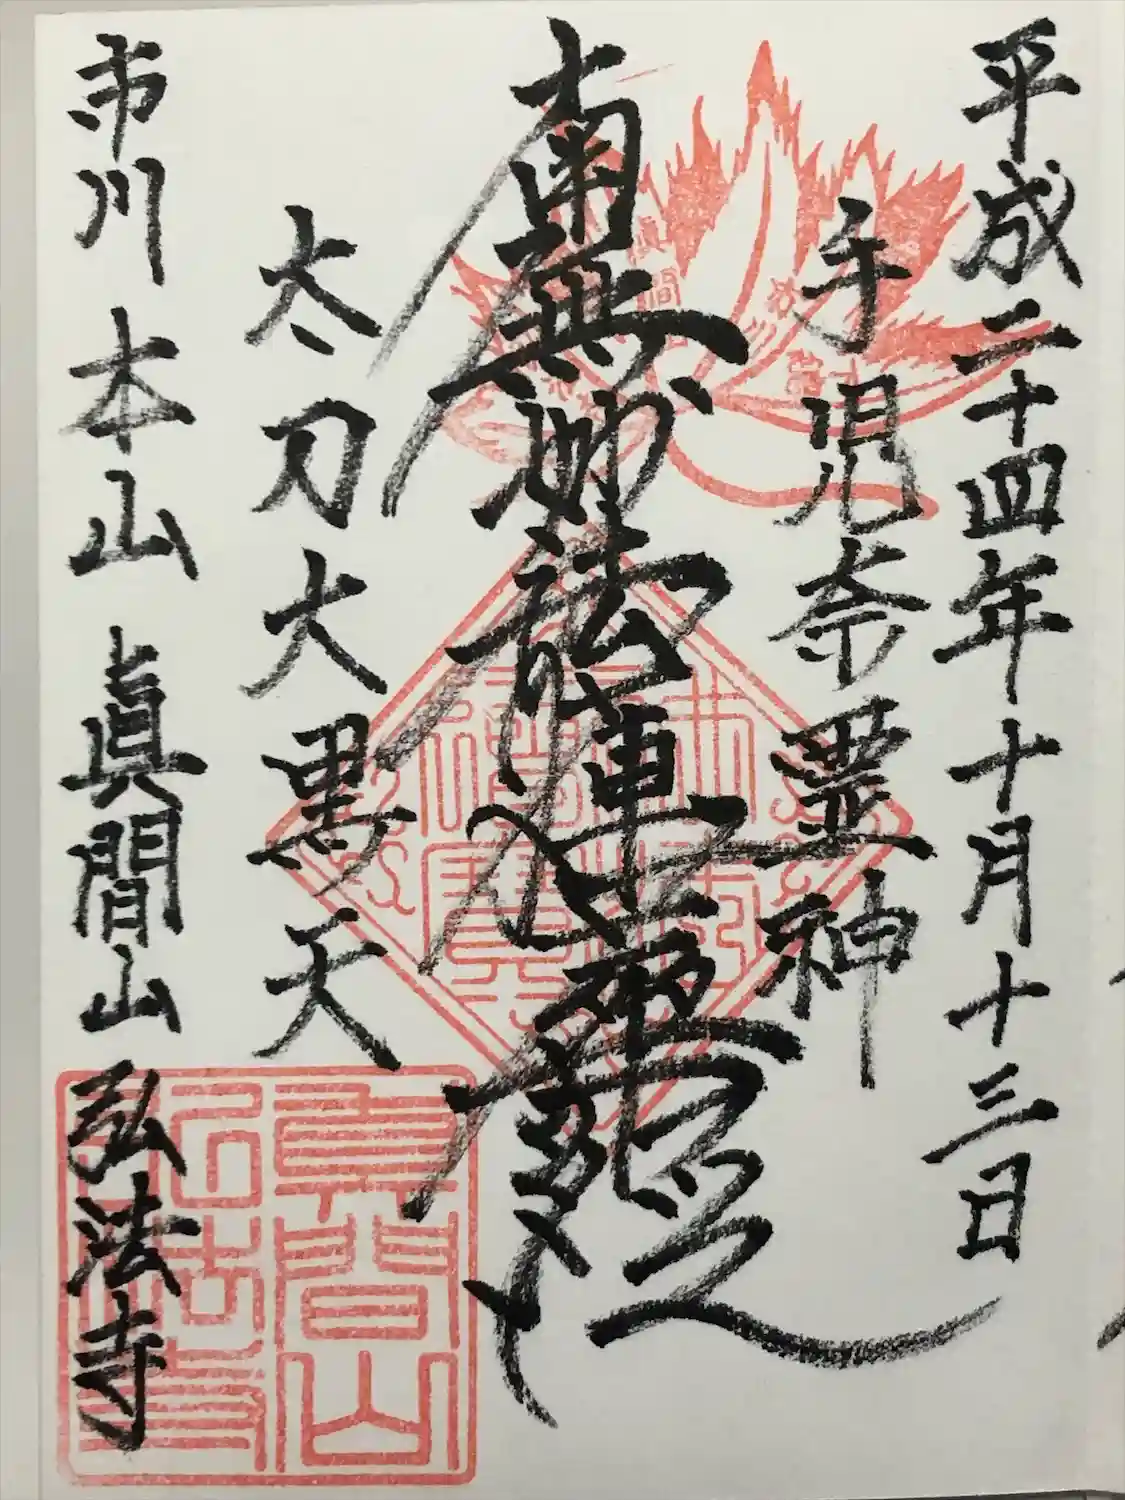 平成二十四年十月十三日
手児奈霊神
南無妙法蓮華経
太刀大黒天
市川 本山 眞間山 弘法寺
眞間山
弘法寺